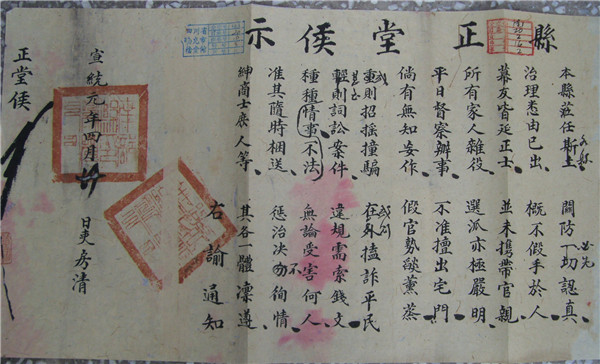 縣正堂侯示
本縣蒞任斯土 關防一切認真
必先
治理悉由己出 概不假手於人
幕友皆延正士 並未攜帶官親
所有家人雜役 選派亦極嚴明
平日督察辦事 不准擅出宅門
倘有無知妄作 假官勢燄薰蒸
重則招搖撞騙 在外搕詐平民
輕則詞訟案件 違規需索錢文
種種情事不法 無論受害何人
准其隨時梱送 懲治决勿徇情
不
紳商士庶人等 其各一體凛遵
右諭通知
宣統元年四月廿 日吏房清
正堂侯